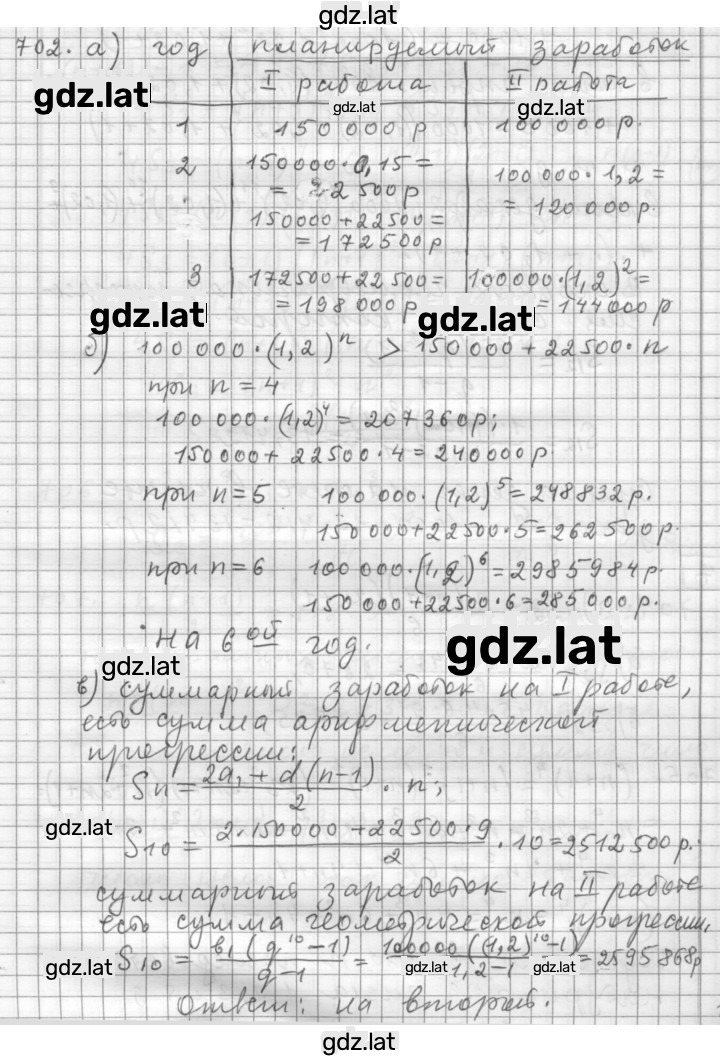 gdz.lat
702. а) год планируемый заработок
gdz.lat I работа II работа
gdz.lat gdz.lat
1 150 000 р 100 000 р.
2 150000·0,15=
= 22500р 100 000·1,2=
150000+22500= = 120 000р.
=172500р
3 172500+22500= 100000·(1,2)²=
gdz.lat = 198 000р gdz.lat = 144000 р
б) 100 000·(1,2)ⁿ > 150 000+22500·n
при n = 4
100 000·(1,2)⁴= 207360р;
150000+ 22500·4=240000р
при n=5 100 000·(1,2)⁵=248832р.
150 000+22500·5=262500р.
при n=6 100 000·(1,2)⁶=2985984р.
150 000+22500·6=285000р.
на 6ой год. gdz.lat
gdz.lat
в) суммарный заработок на I работе,
есть сумма арифметической
прогрессии:
Sn= (2a₁+d(n-1))/2 · n;
gdz.lat
S₁₀ = (2·150000+22500·9)/2 ·10=2512500р.
суммарный заработок на II работе
есть сумма геометрической прогрессии,
gdz.lat S₁₀ = (b₁(q¹⁰-1))/(q-1) = (100000((1,2)¹⁰-1))/(1,2-1) =2595868р
gdz.lat gdz.lat
Ответ: на второй.
gdz.lat